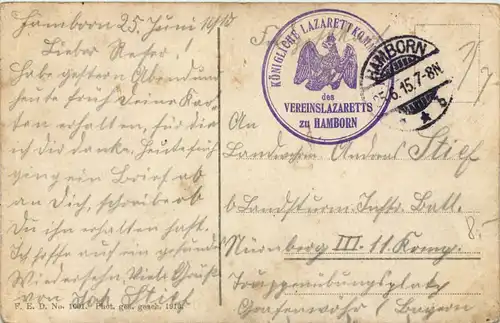 Hamborn 25. Juni 1915
Lieber Peter!
Habe gestern Abend und
heute früh Deine Kar-
ten erhalten, für die
ich Dir danke. Heute früh
ging ein Brief ab
an Dich, schreibe ob
Du ihn erhalten hast.
Ich hoffe auf ein gesundes
Wiedersehn. Viele Grüße
von
F. E. D. No. 1601. Phot. ges. gesch. 1915.
KÖNIGLICHE LAZARETTKOM
des
VEREINSLAZARETTS
zu HAMBORN
HAMBORN
6.15.7-8N
* b
An
Landsturm. Stief
Landsturm Inftr. Batl.
Nürnberg III. 11. Komp.
Truppenübungsplatz
Grafenwöhr / Bayern